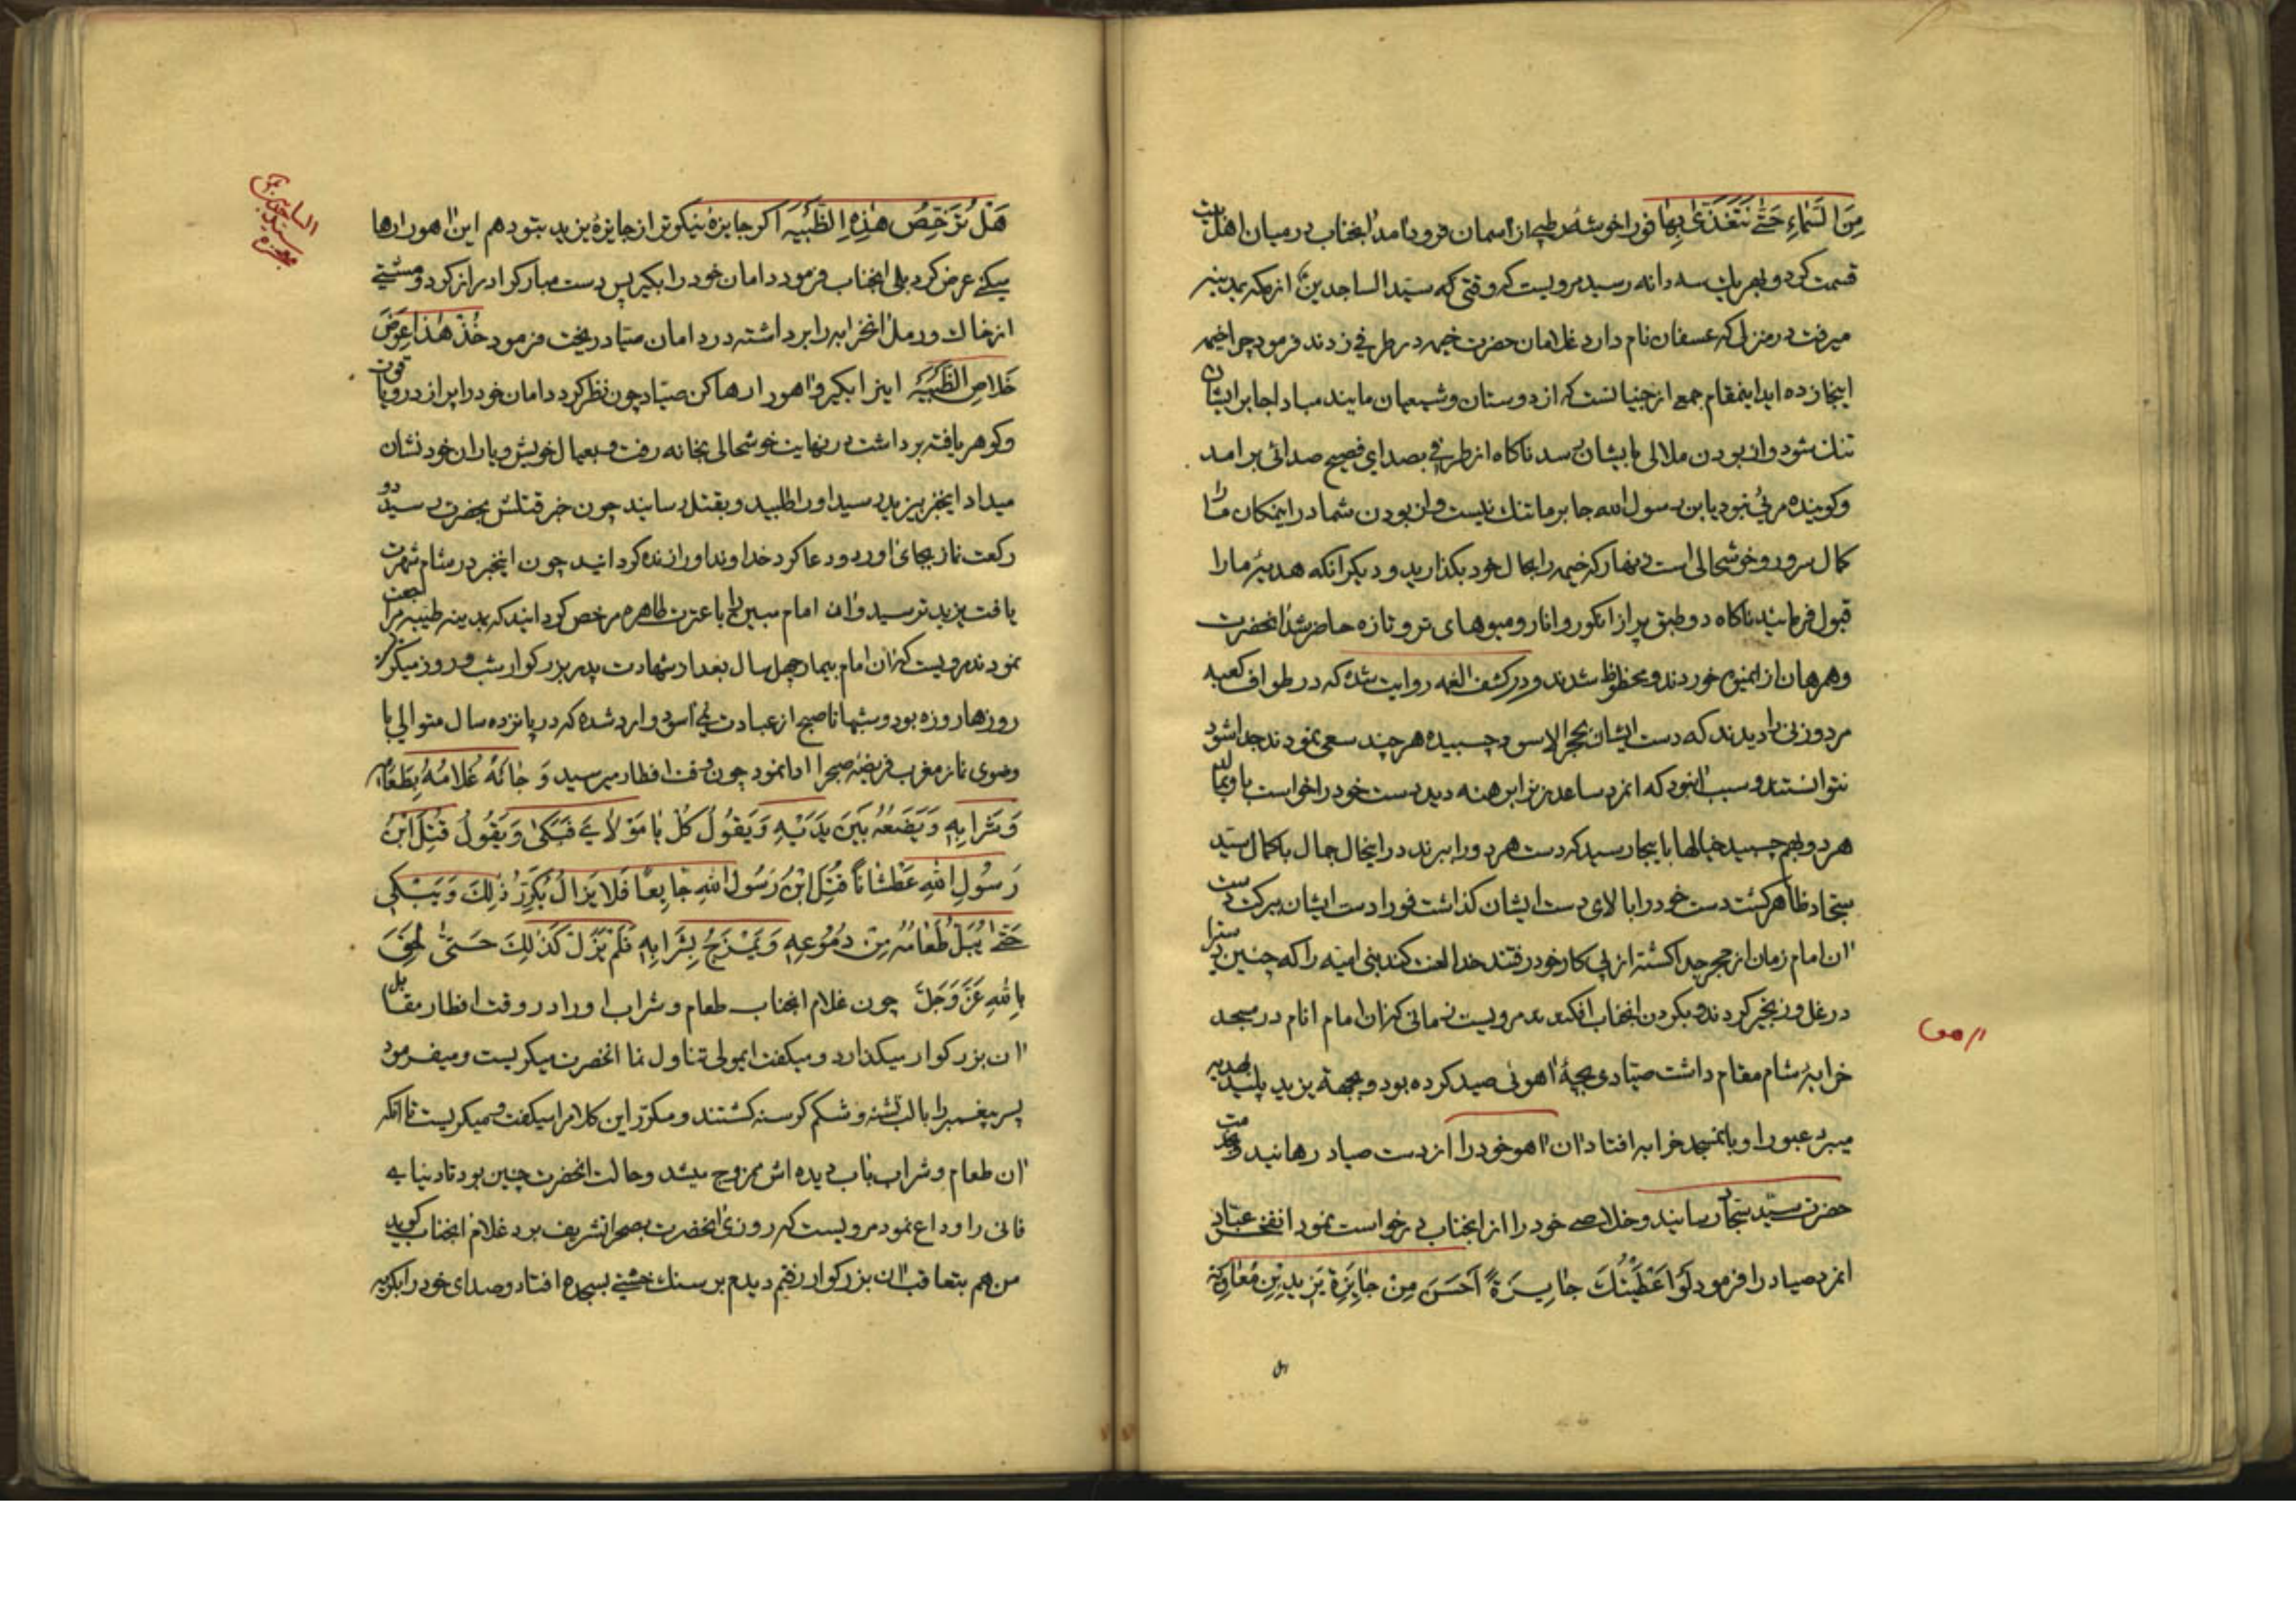 مِنَ السَّمٰاءِ حَتّٰی نَتَغَذّٰی بِهٰا فورا خوشهٔ رطبی از آسمان فرود آمد آنجناب در میان اهلبیت
قسمت کرد و بهر یک سه دانه رسید مرویست که وقتی که سید الساجدین از مکه بمدینه
میرفت در منزلی که عسفان نام دارد غلامان حضرت خیمه در طرفی زدند فرمود چرا خیمه
اینجا زده اید اینمقام جمعی از جنیانست که از دوستان و شیعیان مایند مبادا جا بر ایشان
تنک شود و از بودن ملالی بایشان رسد ناکاه از طرفی بصدای فصیح صدائی برامد
و کوینده مرئی نبود یابن رسول الله جا بر ما تنک نیست و از بودن شما در اینمکان ما را
کمال سرور و خوشحالی است زنهار که خیمه را بحال خود بکذارید و دیکر آنکه هدیهٔ ما را
قبول فرمائید ناکاه دو طبق پر از انکور و انار و میوهای تر و تازه حاضر شد آنحضرت
و همرهان از آنمیوه خوردند و محظوظ شدند و در کشف الغمه روایت شده که در طواف کعبه
مرد و زنی را دیدند که دست ایشان بحجر الاسود چسبیده هر چند سعی نمودند جدا شود
نتوانستند و سبب آنبود که آنمرد ساعد زنرا برهنه دید دست خود را خواست باو بمالد
هر دو بهم چسبید خیالها باینجا رسید که دست هر دو را ببرند در اینحال جمال باکمال سید
سجاد ظاهر کشت دست خود را بالای دست ایشان کذاشت فورا دست ایشان ببرکت دست
آن امام زمان از حجر جدا کشته از پی کار خود رفتند خدا لعنت کند بنی امیه را که چنین دستی را
در غل و زنجیر کردند و بکردن آنجناب افکندند مرویست زمانی که آن امام انام در مسجد
خرابهٔ شام مقام داشت صیادی بچهٔ آهوئی صید کرده بود و بجهة یزید پلید بهدیه
میبرد عبور او بآنمسجد خرابه افتاد آن آهو خود را از دست صیاد رهانید و بخدمت
حضرت سید سجاد رسانید و خلاصی خود را از آنجناب درخواست نمود آنفخر عباد
آنمرد صیاد را فرمود لَوْ اَعْطَیْتُکَ جٰایِزَةً اَحْسَنَ مِنْ جٰایِزَةِ یَزِیدِبْنِ مُعٰاوِیَة
هَلْ تُرَخِّصُ هٰذِهِ الظَّبْیَةَ اکر جایزهٔ نیکوتر از جایزهٔ یزید بتو دهم این آهو را رها
میکنی عرض کرد بلی آنجناب فرمود دامان خود را بکیر پس دست مبارک را دراز کرد و مشتی
از خاک و رمل آنخرابه را برداشته در دامان صیاد ریخت فرمود خُذْ هٰذٰا عِوَضَ
خَلٰاصِ الظَّبْیَةِ اینرا بکیر و آهو را رها کن صیاد چون نظر کرد دامان خود را پر از در و یاقوت
و کوهر یافته برداشت در نهایت خوشحالی بخانه رفت و بعیال خویش و یاران خود نشان
میداد اینخبر بیزید رسید او را طلبید و بقتل رسانید چون خبر قتلش بحضرت رسید دو
رکعت نماز بجای آورد و دعا کرد خداوند او را زنده کردانید چون اینخبر در شام شهرت
یافت یزید ترسید و آن امام مبین را با عترت طاهره مرخص کردانید که بمدینه طیبه مراجعت
نمودند مرویست که آن امام بیمار چهل سال بعد از شهادت پدر بزرکوار شب و روز میکریست
روزها روزه بود و شبها تا صبح از عبادت نمی آسود وارد شده که در پانزده سال متوالی با
وضوی نماز مغرب فریضهٔ صبح را ادا نمود چون وقت افطار میرسید وَ جٰائَهُ غُلٰامُهُ بِطَعٰامِهِ
وَ شَرٰابِهِ وَ یَضَعُهُ بَیْنَ یَدَیْهِ وَ یَقُولُ کُلْ یٰا مَوْلٰایَ فَبَکیٰ وَ یَقُولُ قُتِلَ ابْنُ
رَسُولِ اللهِ عَطْشٰاناً قُتِلَ ابْنُ رَسُولِ اللهِ جٰایِعاً فَلٰا یَزٰالُ یُکَرِّرُ ذٰلِکَ وَ یَبْکِی
حَتّٰی یُبَلَّ طَعٰامُهُ مِنْ دُمُوعِهِ وَ یَمْزَجُ بِشَرٰابِهِ فَلَمْ یَزَلْ کَذٰلِکَ حَتّٰی لَحِقَ
بِاللهِ عَزَّ وَ جَلَّ چون غلام آنجناب طعام و شراب او را در وقت افطار مقابل
آن بزرکوار میکذارد و میکفت ایمولی تناول نما آنحضرت میکریست و میفرمود
پسر پیغمبر را با لب تشنه و شکم کرسنه کشتند و مکرر این کلامرا میکفت و میکریست تا آنکه
آن طعام و شراب بآب دیده اش ممزوج میشد و حالت آنحضرت چنین بود تا دنیای
فانی را وداع نمود مرویست که روزی آنحضرت بصحرا تشریف برد غلام آنجناب کوید
من هم بتعاقب آن بزرکوار رفتم دیدم بر سنک خشنی بسجده افتاد و صدای خود را بکریه